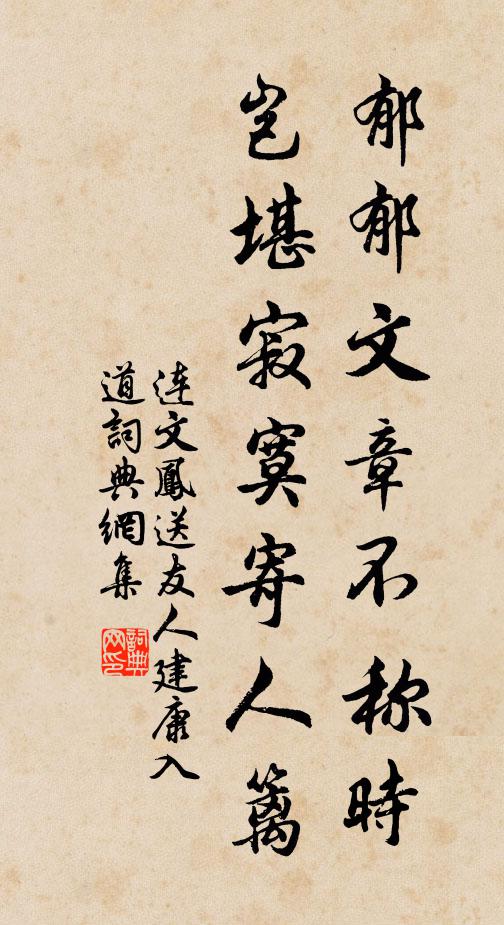 郁郁文章不称時
豈堪寂寞寄人籬
連文鳳送友人建康入
道詞典網集
詞典网印